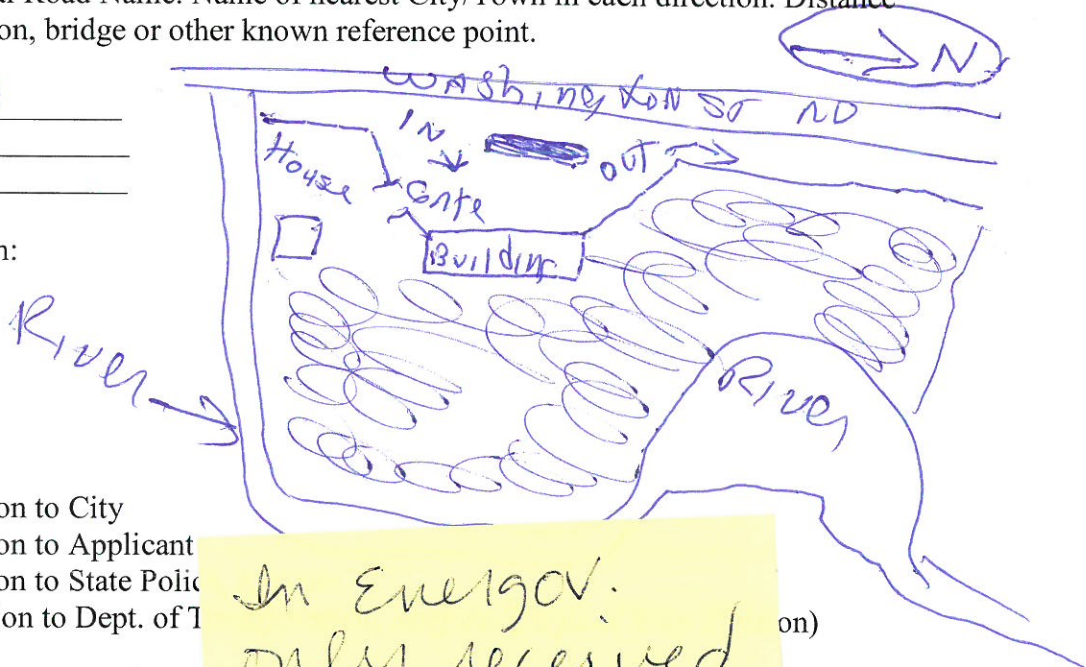 Road Name. Name of nearest City/Town in each direction. Distance
on, bridge or other known reference point.
N
WAShingtON ST ND
IN
OUT
House
Gate
Building
n:
River
River
on to City
on to Applicant
on to State Polic
on to Dept. of T
on)
In Energov.
only received